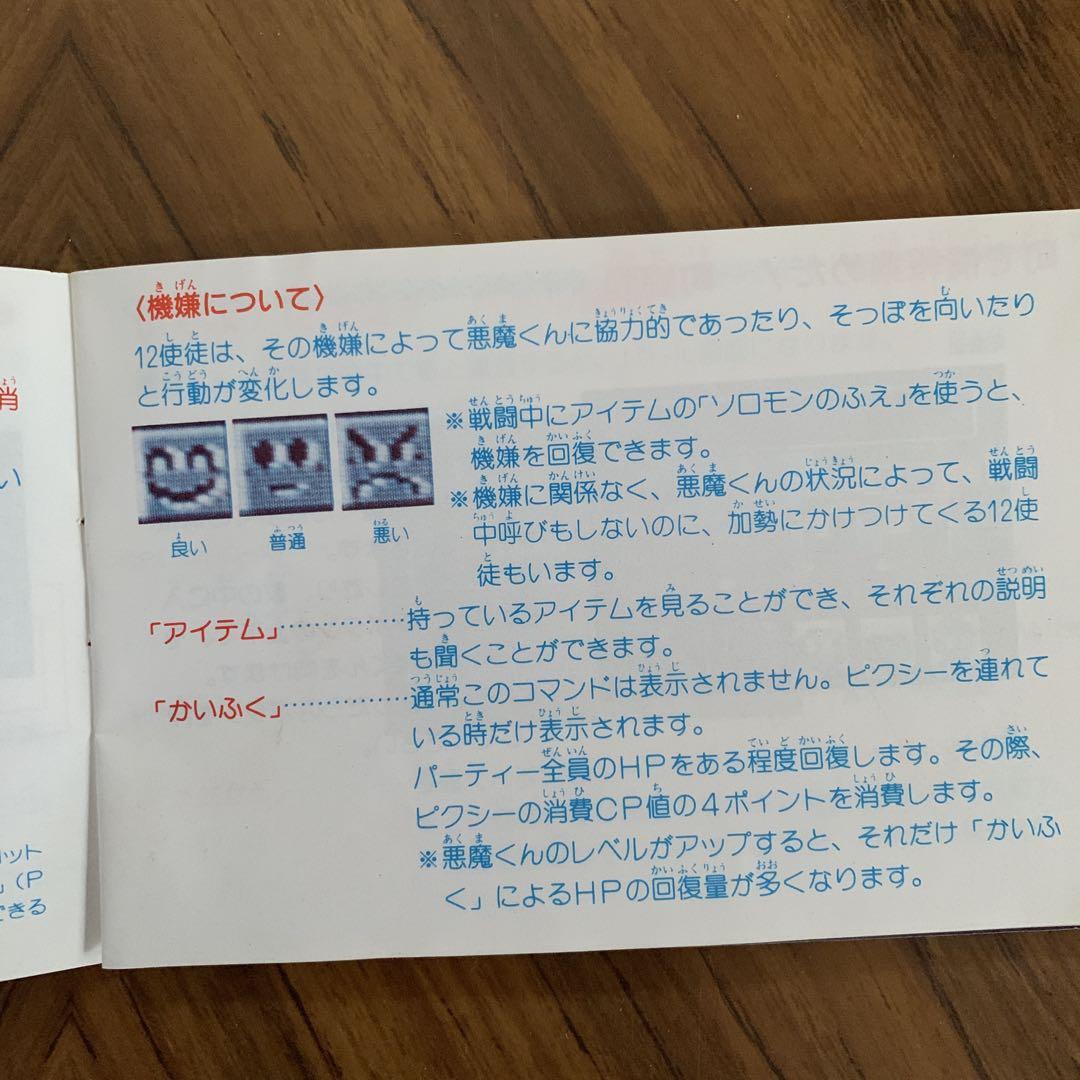 〈機嫌について〉
12使徒は、その機嫌によって悪魔くんに協力的であったり、そっぽを向いたり
と行動が変化します。
※戦闘中にアイテムの「ソロモンのふえ」を使うと、
機嫌を回復できます。
※機嫌に関係なく、悪魔くんの状況によって、戦闘
中呼びもしないのに、加勢にかけつけてくる12使
徒もいます。
良い 普通 悪い
「アイテム」……………持っているアイテムを見ることができ、それぞれの説明
も聞くことができます。
「かいふく」……………通常このコマンドは表示されません。ピクシーを連れて
いる時だけ表示されます。
パーティー全員のHPをある程度回復します。その際、
ピクシーの消費CP値の4ポイントを消費します。
※悪魔くんのレベルがアップすると、それだけ「かいふ
く」によるHPの回復量が多くなります。
消
い
ット
」(P
できる